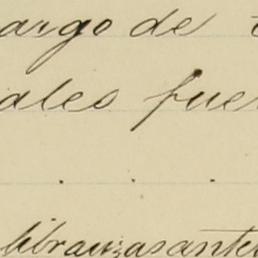 argo de
ales fue
. . .
libranzas ante